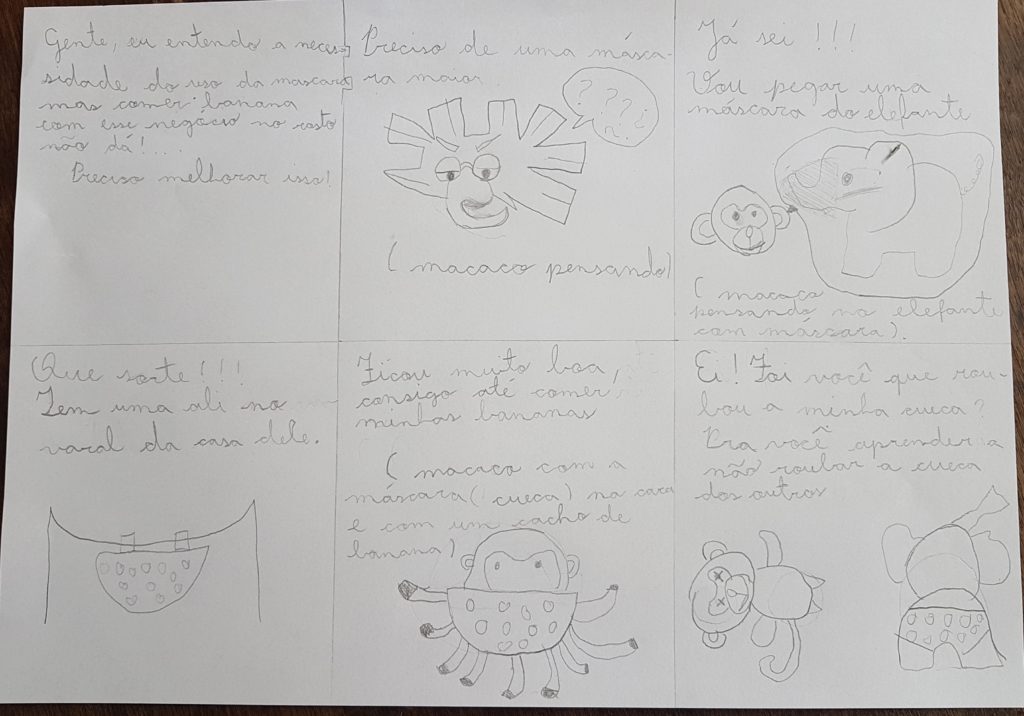 Gente, eu entendo a neces-
sidade do uso da mascara
mas comer banana
com esse negócio no rosto
não dá!...
Preciso melhorar isso!
Preciso de uma másca-
ra maior
? ? ? ?
( macaco pensando)
Já sei !!!
Vou pegar uma
máscara do elefante
( macaco
pensando no elefante
com máscara).
Que sorte!!!
Tem uma ali no
varal da casa dele.
Ficou muito boa,
consigo até comer
minhas bananas
( macaco com a
máscara( cueca) na cara
e com um cacho de
banana)
Ei! Foi você que rou-
bou a minha cueca?
Pra você aprender a
não roubar a cueca
dos outros